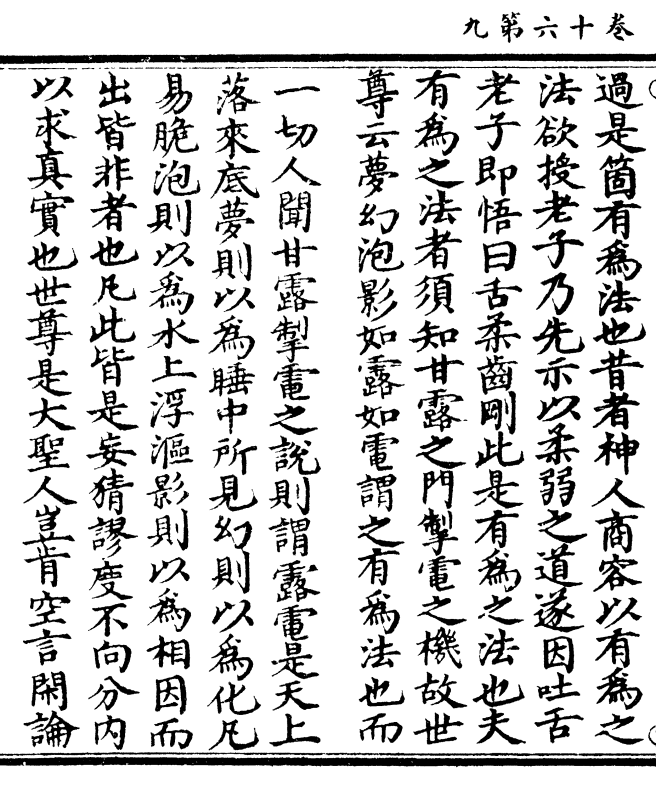 卷十六第九
過是箇有爲法也昔者神人商容以有爲之
法欲授老子乃先示以柔弱之道遂因吐舌
老子即悟曰舌柔齒剛此是有爲之法也夫
有爲之法者須知甘露之門掣電之機故世
尊云夢幻泡影如露如電謂之有爲法也而
一切人聞甘露掣電之說則謂露電是天上
落來底夢則以爲睡中所見幻則以爲化凡
易脆泡則以爲水上浮漚影則以爲相因而
出皆非者也凡此皆是妄猜謬度不向分内
以求真實也世尊是大聖人豈肯空言閑論